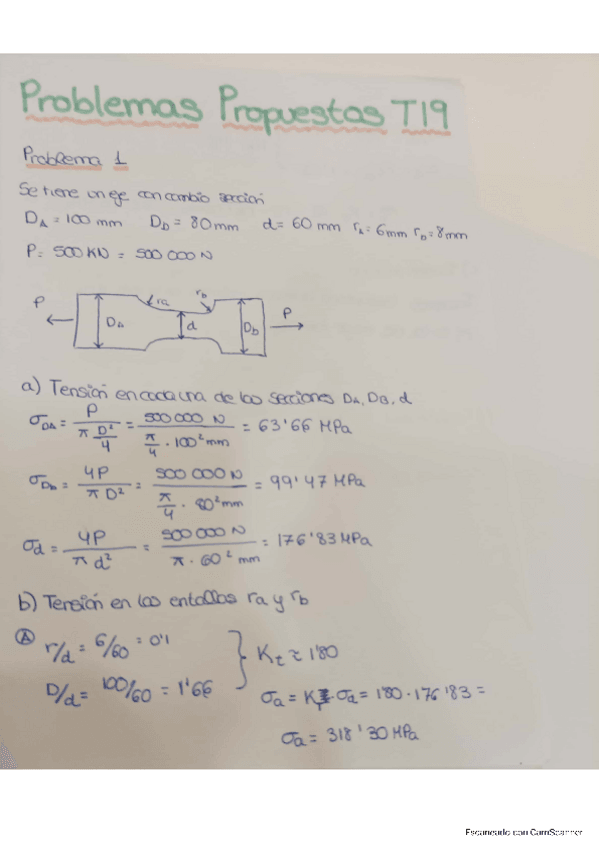 Problemas Propuestas T19
Problema 1
Se tiene un eje con cambio seccion
D_A = 100 mm D_D = 80 mm d = 60 mm r_A = 6 mm r_b = 8 mm
P = 500 KN = 500 000 N
P D_A ra d rb D_b P
a) Tensión en cada una de las secciones D_A, D_B, d
σ_DA = P / (π D²/4) = 500 000 N / (π/4 · 100² mm) = 63'66 MPa
σ_Db = 4P / (π D²) = 500 000 N / (π/4 · 80² mm) = 99'47 MPa
σ_d = 4P / (π d²) = 500 000 N / (π · 60² mm) = 176'83 MPa
b) Tensión en las entallas ra y rb
Ⓐ r/d = 6/60 = 0'1
D/d = 100/60 = 1'66 } K_t ≈ 1'80
σ_a = K_t · σ_a = 1'80 · 176'83 =
σ_a = 318'30 MPa
Escaneado con CamScanner